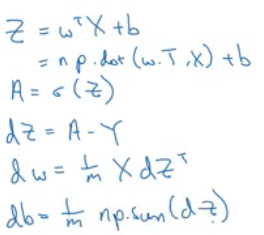 Z = wᵀX + b
= np.dot(w.T, X) + b
A = σ(Z)
dZ = A - Y
dw = 1/m X dZᵀ
db = 1/m np.sum(dZ)